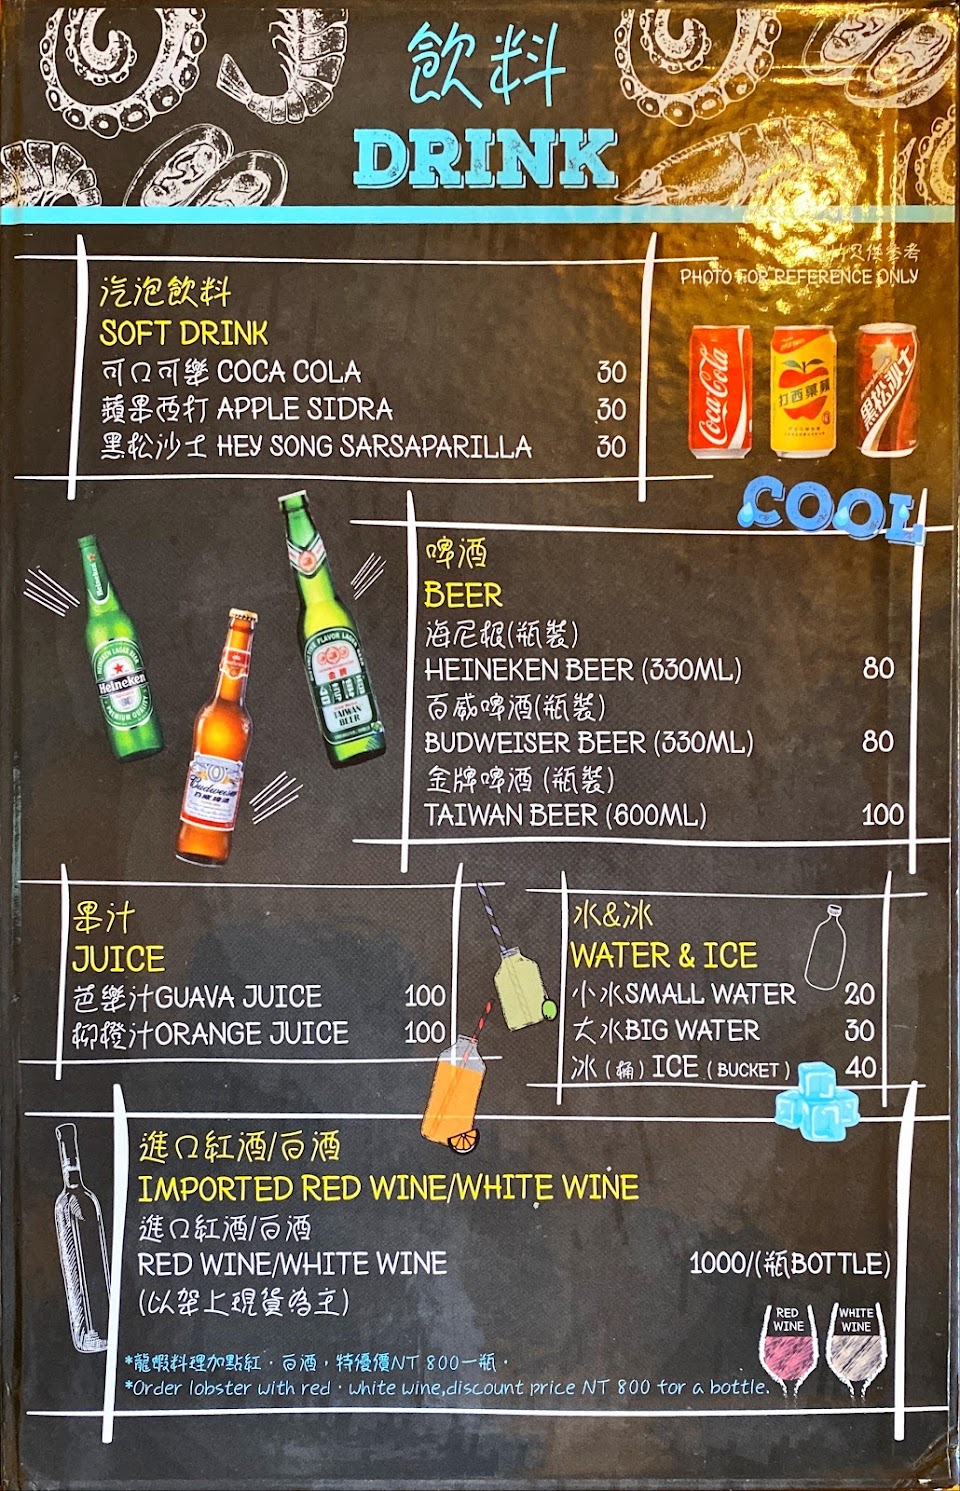 飲料
DRINK
只供參考
PHOTO FOR REFERENCE ONLY
汽泡飲料
SOFT DRINK
可口可樂 COCA COLA 30
蘋果西打 APPLE SIDRA 30
黑松沙士 HEY SONG SARSAPARILLA 30
Coca-Cola
蘋果西打
黑松沙士
COOL
啤酒
BEER
海尼根(瓶裝)
HEINEKEN BEER (330ML) 80
百威啤酒(瓶裝)
BUDWEISER BEER (330ML) 80
金牌啤酒 (瓶裝)
TAIWAN BEER (600ML) 100
Heineken
Heineken
PREMIUM QUALITY
Budweiser
百威啤酒
金牌
TAIWAN
BEER
果汁
JUICE
芭樂汁GUAVA JUICE 100
柳橙汁ORANGE JUICE 100
水&冰
WATER & ICE
小水SMALL WATER 20
大水BIG WATER 30
冰(桶) ICE (BUCKET) 40
進口紅酒/白酒
IMPORTED RED WINE/WHITE WINE
進口紅酒/白酒
RED WINE/WHITE WINE 1000/(瓶BOTTLE)
(以架上現貨為主)
RED
WINE
WHITE
WINE
*龍蝦料理加點紅．白酒，特優價NT 800一瓶．
*Order lobster with red．white wine,discount price NT 800 for a bottle.